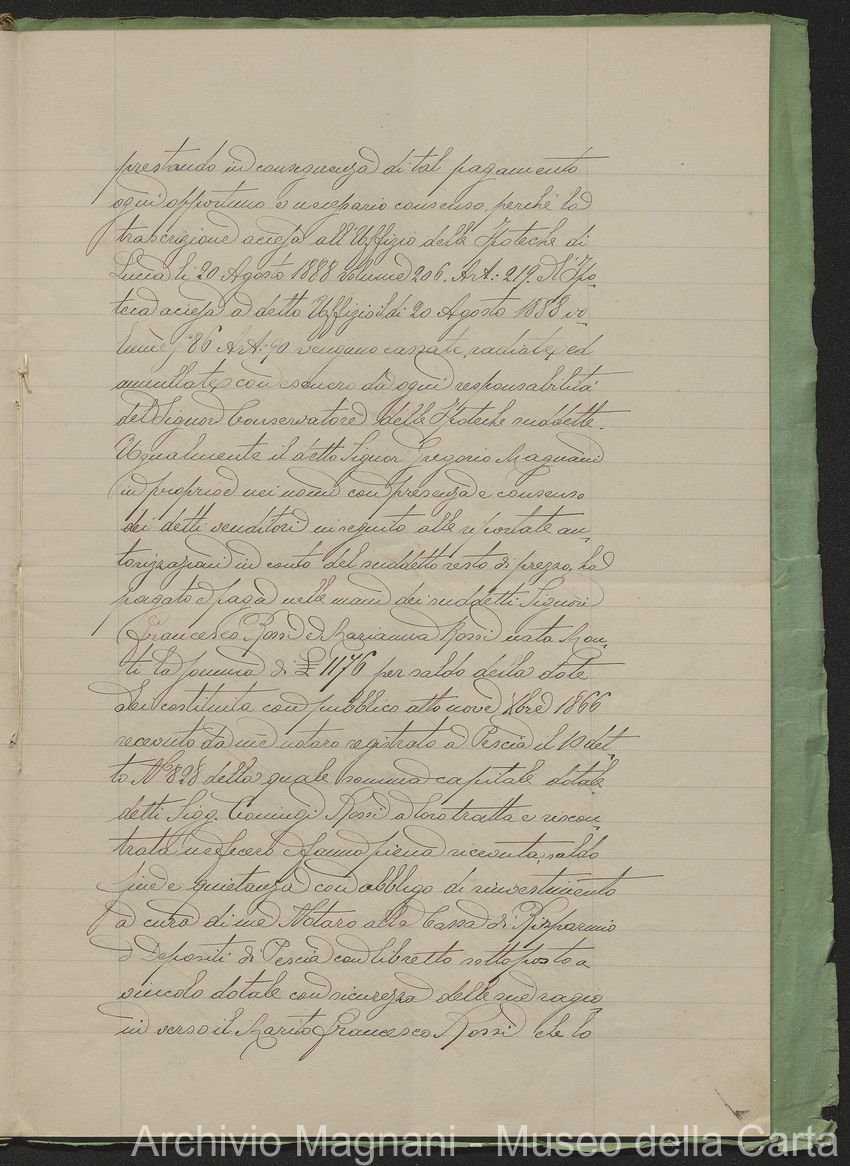 prestando in conseguenza di tal pagamento
ogni opportuno e necessario consenso, perché la
trascrizione accesa all'Uffizio delle Ipoteche di
Lucca li 20 Agosto 1888 volume 206. Art: 219. N Ipo=
teca accesa a detto Uffizio il dì 20 Agosto 1888 vo=
lume 86 Art: 90 vengano cassate, radiate ed
annullate con esonero da ogni responsabilità
del Signor Conservatore delle Ipoteche suddette.
Ugualmente il detto Signor Gregorio Magnani
in proprio e nei nomi con presenza e consenso
dei detti venditori in seguito alle riportate au=
torizzazioni in conto del suddetto resto di prezzo, ha
pagato e paga nelle mani dei suddetti Signori
Francesco Rossi e Marianna Rossi nata Mon=
ti la somma di £ 1176 per saldo della dote
a lei costituita con pubblico atto nove Xbre 1866
ricevuto da me notaro registrato a Pescia il 13 det=
to N° 828 della quale somma capitale dotale
detti Sigg. Coniugi Rossi a loro tratta e riscon=
trata ne fecero e fanno piena ricevuta, saldo
fine e quietanza con obbligo di rinvestimento
a cura di me Notaro alla Cassa di Risparmio
e Depositi di Pescia con libretto sottoposto a
vincolo dotale con sicurezza delle sue ragio=
ni verso il Marito Francesco Rossi che lo
Archivio Magnani - Museo della Carta